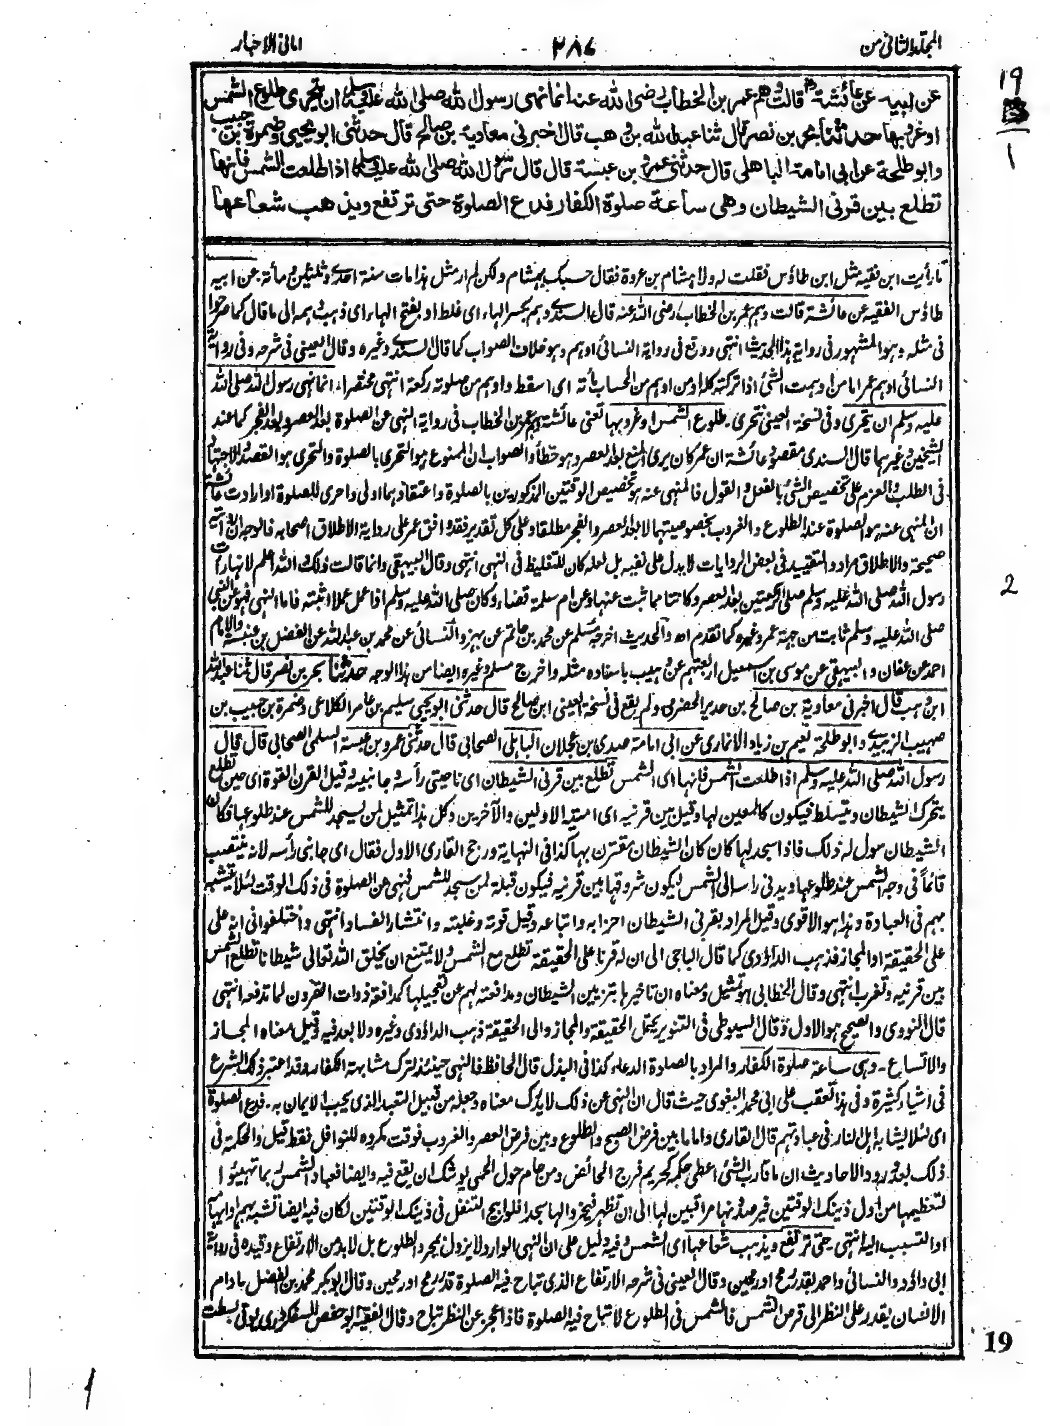 المجلد الثانى من
٢٨٤
امانى الاحبار
19
1
عن ابيه عن عائشة قالت وهم عمر بن الخطاب رضى الله عنه انما نهى رسول الله صلى الله عليه وسلم ان يتحرى طلوع الشمس
او غروبها حدثنا بحر بن نصر قال ثنا عبد الله بن وهب قال اخبرنى معاوية بن صالح قال حدثنى ابو يحيى وضمرة بن حبيب
وابو طلحة عن ابى امامة الباهلى قال حدثنى عمرو بن عبسة قال قال رسول الله صلى الله عليه وسلم اذا طلعت الشمس فانها
تطلع بين قرنى الشيطان وهى ساعة صلوة الكفار فدع الصلوة حتى ترتفع ويذهب شعاعها
ما رأيت ابن فقيه مثل ابن طاؤس فقلت له ولا هشام بن عروة فقال حسبك بهشام ولكن لم ار مثل هذا مات سنة احدى وثلثين ومائة عن ابيه
طاؤس الفقيه عن عائشة قالت وهم عمر بن الخطاب رضى الله عنه قال السندى وهم بكسر الهاء اى غلط او بفتح الهاء اى ذهب وهمه الى ما قال كما صرحوا
فى مثله وهو المشهور فى رواية هذا الحديث انتهى ووقع فى رواية النسائى اوهم وهو خلاف الصواب كما قال السندى وغيره وقال العينى فى شرحه وفى رواية
النسائى اوهم عمر اما من اوهمت الشئ اذا تركته كله او من اوهم من الحساب مأة اى اسقط واوهم من صلوته ركعة انتهى مختصرا، انما نهى رسول الله صلى الله
عليه وسلم ان يتحرى وفى نسخة العينى نتحرى، طلوع الشمس او غروبها تعنى عائشة وهم عمر بن الخطاب فى رواية النهى عن الصلوة بعد العصر وبعد الفجر كما عند
الشيخين وغيرهما قال السندى مقصود عائشة ان عمر كان يرى المنع بعد العصر وهو خطأ والصواب ان الممنوع هو التحرى بالصلوة والتحرى هو القصد والاجتهاد
فى الطلب والعزم على تخصيص الشئ بالفعل والقول فالمنهى عنه هو تخصيص الوقتين المذكورين بالصلوة واعتقادهما اولى واحرى للصلوة او ارادت عائشة
ان المنهى عنه هو الصلوة عند الطلوع والغروب بخصوصيتهما لا بعد العصر والفجر مطلقا وعلى كل تقدير فقد وافق عمر على رواية الاطلاق اصحابه فالوجه ان روايته
صحيحة والاطلاق مراد والتقييد فى بعض الروايات لا يدل على نفيه بل لعله كان للتغليظ فى النهى انتهى وقال البيهقى وانما قالت ذلك الله اعلم لانها رأت
رسول الله صلى الله عليه وسلم صلى الركعتين بعد العصر وكانتا مما ثبت عنها وعن ام سلمة قضاء وكان صلى الله عليه وسلم اذا عمل عملا اثبته فاما النهى فهو عن النبى
صلى الله عليه وسلم ثابت من جهة عمر وغيره كما تقدم اه والحديث اخرجه مسلم عن محمد بن حاتم عن بهز والنسائى عن محمد بن عبد الله عن الفضل بن عنبسة والامام
احمد عن عفان والبيهقى عن موسى بن اسمعيل اربعتهم عن وهيب باسناده مثله واخرج مسلم وغيره ايضا من هذا الوجه حدثنا بحر بن نصر قال ثنا عبد الله
ابن وهب قال اخبرنى معاوية بن صالح بن حدير الحضرمى ولم يقع فى نسخة العينى ابن صالح قال حدثنى ابو يحيى سليم بن عامر الكلاعى وضمرة بن حبيب بن
صهيب الزبيدى وابو طلحة نعيم بن زياد الانمارى عن ابى امامة صدى بن عجلان الباهلى الصحابى قال حدثنى عمرو بن عبسة السلمى الصحابى قال قال
رسول الله صلى الله عليه وسلم اذا طلعت الشمس فانها اى الشمس تطلع بين قرنى الشيطان اى ناحيتى رأسه وجانبيه وقيل القرن القوة اى حين تطلع
يتحرك الشيطان ويتسلط فيكون كالمعين لها وقيل بين قرنيه اى امتيه الاولين والآخرين وكل هذا تمثيل لمن يسجد للشمس عند طلوعها فكان
الشيطان سول له ذلك فاذا سجد لها كان كان الشيطان مقترن بها كذا فى النهاية ورجح القارى الاول فقال اى جانبى رأسه لانه ينتصب
قائما فى وجه الشمس عند طلوعها ويدنى رأسه الى الشمس ليكون شروقها بين قرنيه فيكون قبلة لمن سجد للشمس فنهى عن الصلوة فى ذلك الوقت لئلا يتشبه
بهم فى العبادة وهذا هو الاقوى وقيل المراد بقرنى الشيطان احزابه واتباعه وقيل قوته وغلبته وانتشار الفساد انتهى واختلفوا فى انه على
على الحقيقة او المجاز فذهب الداؤدى كما قال الباجى الى ان له قرنا على الحقيقة تطلع مع الشمس ولا يمتنع ان يخلق الله تعالى شيطانا تطلع الشمس
بين قرنيه وتغرب انتهى وقال الخطابى هو تمثيل ومعناه ان تاخيرها بتزيين الشيطان ومدافعته لهم عن تعجيلها كمدافعة ذوات القرون لما تدفعه انتهى
قال النووى والصحيح هو الاول وقال السيوطى فى التنوير يحتمل الحقيقة والمجاز والى الحقيقة ذهب الداؤدى وغيره ولا بعد فيه وقيل معناه المجاز
والاتساع۔ وهى ساعة صلوة الكفار والمراد بالصلوة الدعاء كذا فى البذل قال الحافظ فالنهى حينئذ لترك مشابهة الكفار وقد اعتبر ذلك الشرع
فى اشياء كثيرة وفى هذا تعقب على ابى محمد البغوى حيث قال ان النهى عن ذلك لا يدرك معناه وجعله من قبيل التعبد الذى يجب الايمان به۔ فدع الصلوة
اى لئلا يشابه اهل النار فى عبادتهم قال القارى واما ما بين فرض الصبح والطلوع وبين فرض العصر والغروب فوقت مكروه للنوافل فقط قيل والحكمة فى
ذلك بعد ورود الاحاديث ان ما قارب الشئ اعطى حكمه كتحريم فرج الحائض ومن حام حول الحمى يوشك ان يقع فيه وايضا فعباد الشمس ربما تهيئوا
لتعظيمها من اول ذينك الوقتين فيرصدونها مراقبين لها الى ان تظهر فيخروا لها سجدا فلو ابيح التنفل فى ذينك الوقتين لكان فيه ايضا تشبه بهم او ايهامه
او التسبب اليه انتهى۔ حتى ترتفع ويذهب شعاعها اى الشمس وفيه دليل على ان النهى الوارد لا يزول بمجرد الطلوع بل لا بد من الارتفاع وقيده فى رواية
ابى داؤد والنسائى واحمد بقدر رمح او رمحين وقال العينى فى شرحه الارتفاع الذى تباح فيه الصلوة قدر رمح او رمحين وقال ابو بكر محمد بن الفضل ما دام
الانسان يقدر على النظر الى قرص الشمس فالشمس فى الطلوع لا تباح فيه الصلوة فاذا عجز عن النظر تباح وقال الفقيه ابو حفص السفكردرى يؤتى بطست
2
19
1